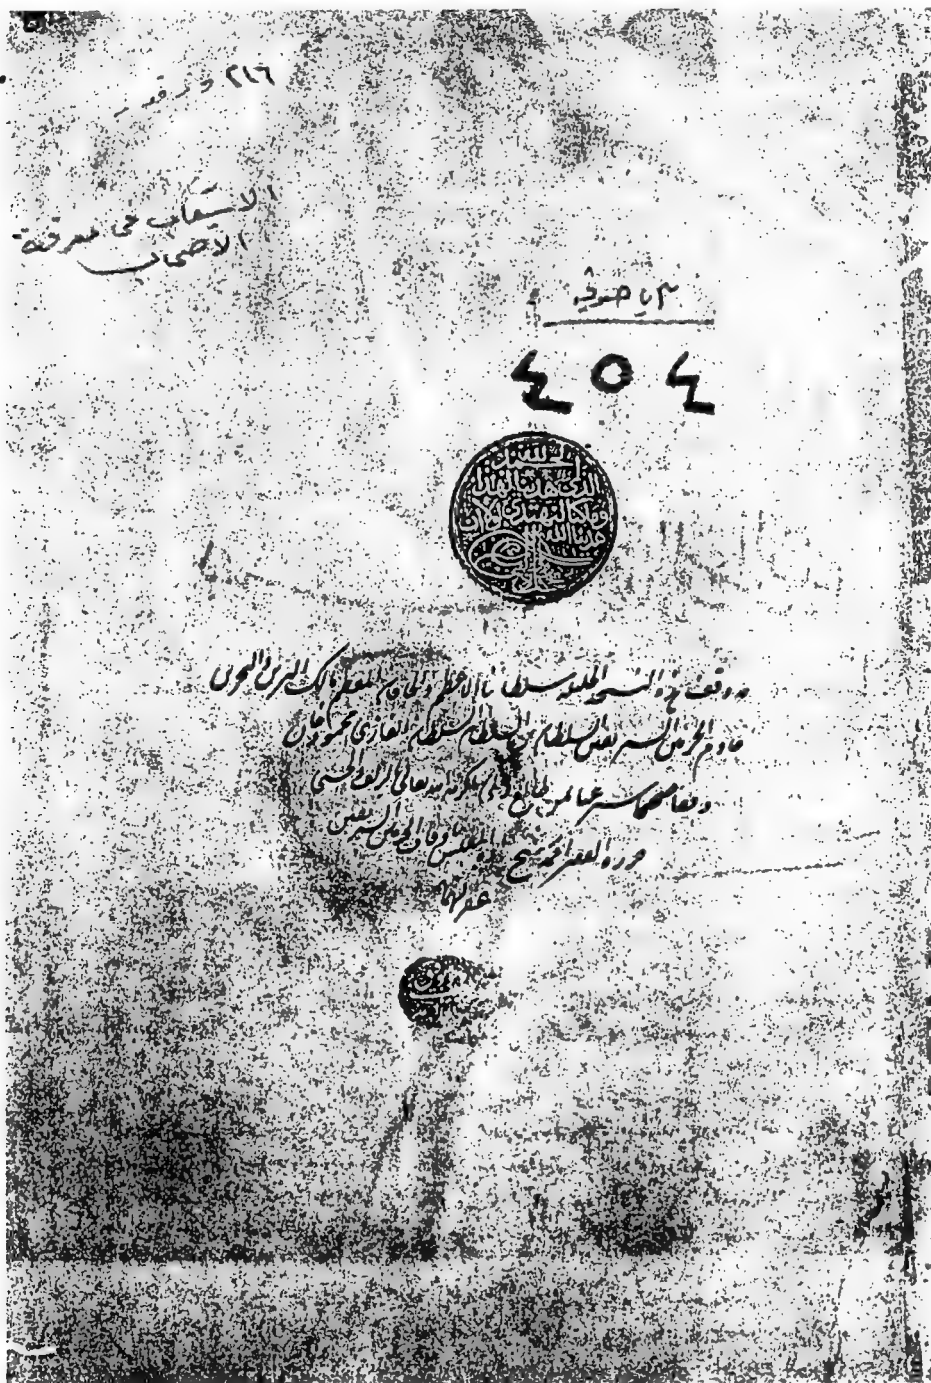 ٢١٦ ورقه
الاستيعاب في معرفة
الاصحاب
آيا صوفيه
٤٥٤
الحمد لله
الذي هدانا لهذا
وما كنا لنهتدي لولا أن
هدانا الله
قد وقف هذه النسخة الجليلة سلطاننا الاعظم والخاقان المعظم مالك البرين والبحرين
خادم الحرمين الشريفين السلطان بن السلطان السلطان الغازي محمود خان
وقفا صحيحا شرعيا لمن طالع
حرره الفقير احمد شيخ زاده المفتش باوقاف الحرمين الشريفين
غفر لهما